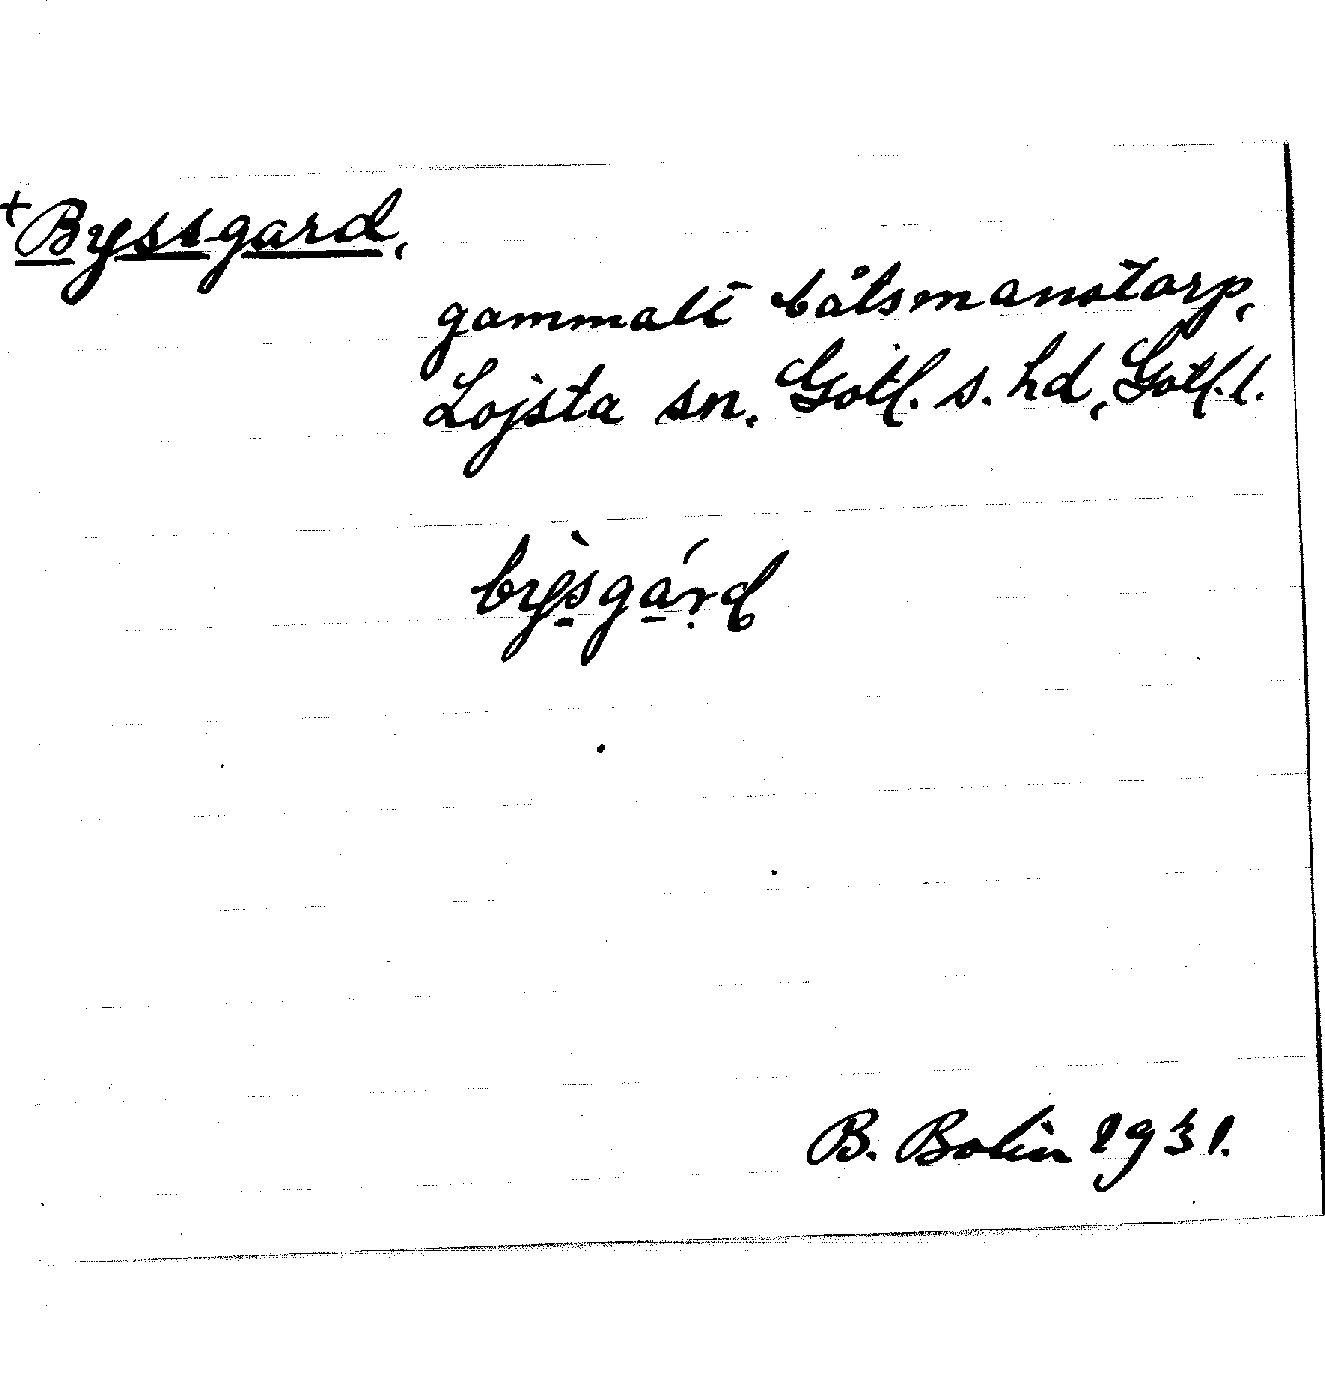 +Byssgard,
gammalt båtsmanstorp,
Lojsta sn. Gotl. s. hd, Gotl. l.
bỳsgárd
B. Bolin 1931.